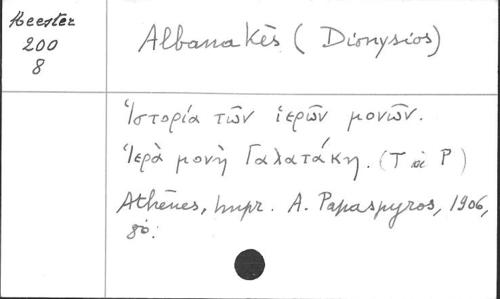 Heester
200
8
Albanakès (Dionysios)
Ἱστορία τῶν ἱερῶν μονῶν.
Ἱερὰ μονὴ Γαλατάκη. (T à P)
Athènes, impr. A. Papaspyros, 1906,
8º.